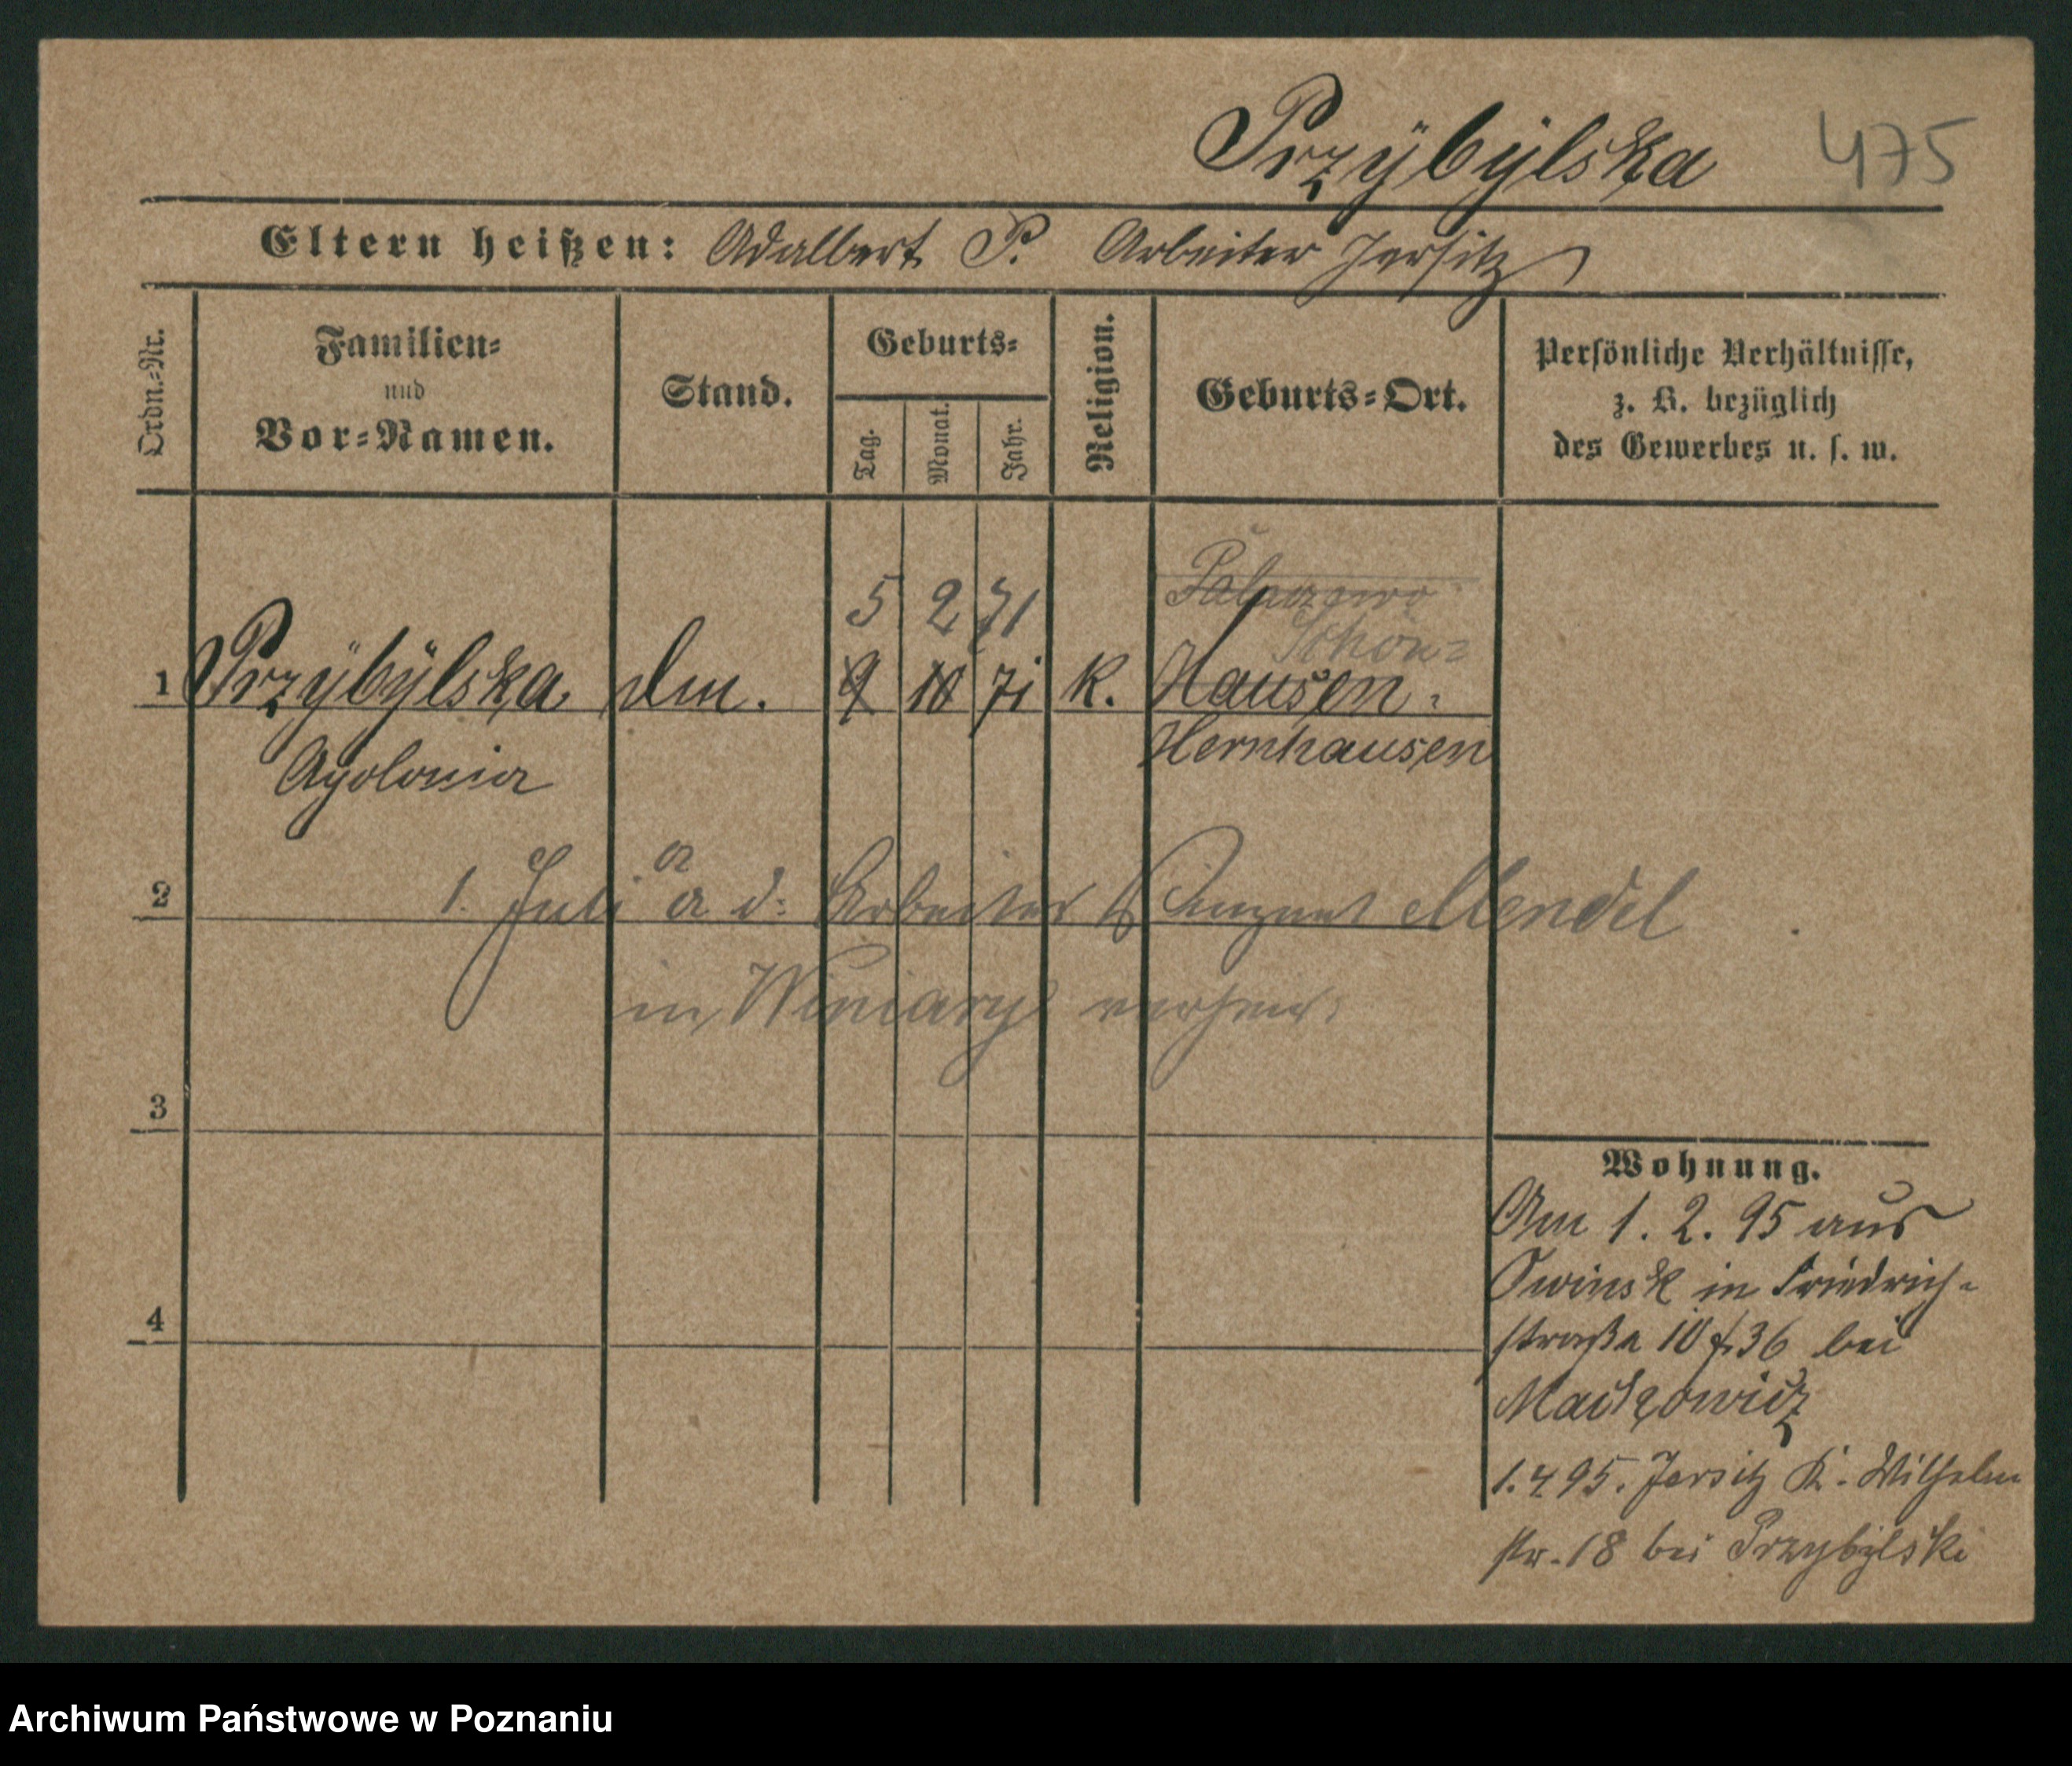 Przÿbÿlska 475
Eltern heißen: Adalbert P. Arbeiter Jersitz
Ordn.-Nr.
Familien-
und
Vor-Namen.
Stand.
Geburts-
Tag.
Monat.
Jahr.
Religion.
Geburts-Ort.
Persönliche Verhältnisse,
z. B. bezüglich
des Gewerbes u. s. w.
5 2 71
Schön-
1 Przÿbÿlska dm. 9 10 71 k. Hausen.
Apolonia Hernhausen
2 1. Juli a d. Arbeiter Mendel
in Winiary
3
4
Wohnung.
Am 1. 2. 95 aus
Owinsk in Friedrich-
straße 10 f. 36 bei
Maikowicz
1. 4 95. Jersitz K. Wilhelm
str. 18 bei Przybÿlski
Archiwum Państwowe w Poznaniu